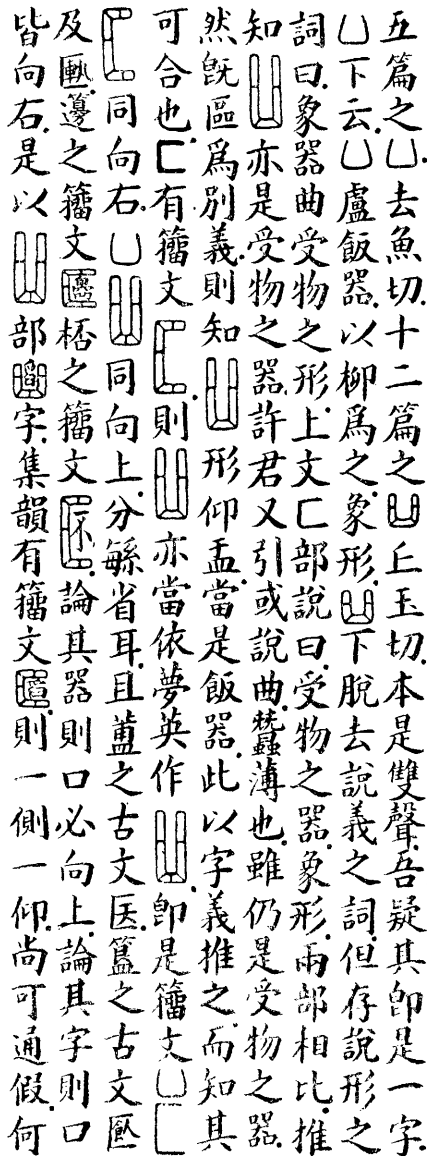 五篇之凵.去魚切.十二篇之𠚖.丘玉切.本是雙聲.吾疑其卽是一字.
凵下云.凵盧飯器.以柳爲之.象形.下脫去說義之詞.但存說形之
詞曰.象器曲受物之形.上文匚部說曰.受物之器.象形.兩部相比.推
知亦是受物之器.許君又引或說曲.蠶薄也.雖仍是受物之器.
然旣區爲別義.則知形仰盂.當是飯器.此以字義推之.而知其
可合也.匚有籀文.則亦當依夢英作卽是籀文凵匚
同向右.凵同向上.分緐省耳.且之古文医.簋之古文
及籩之籀文.桮之籀文.論其器則口必向上.論其字則口
皆向右.是以部字.集韻有籀文.則一側一仰.尚可通假.何